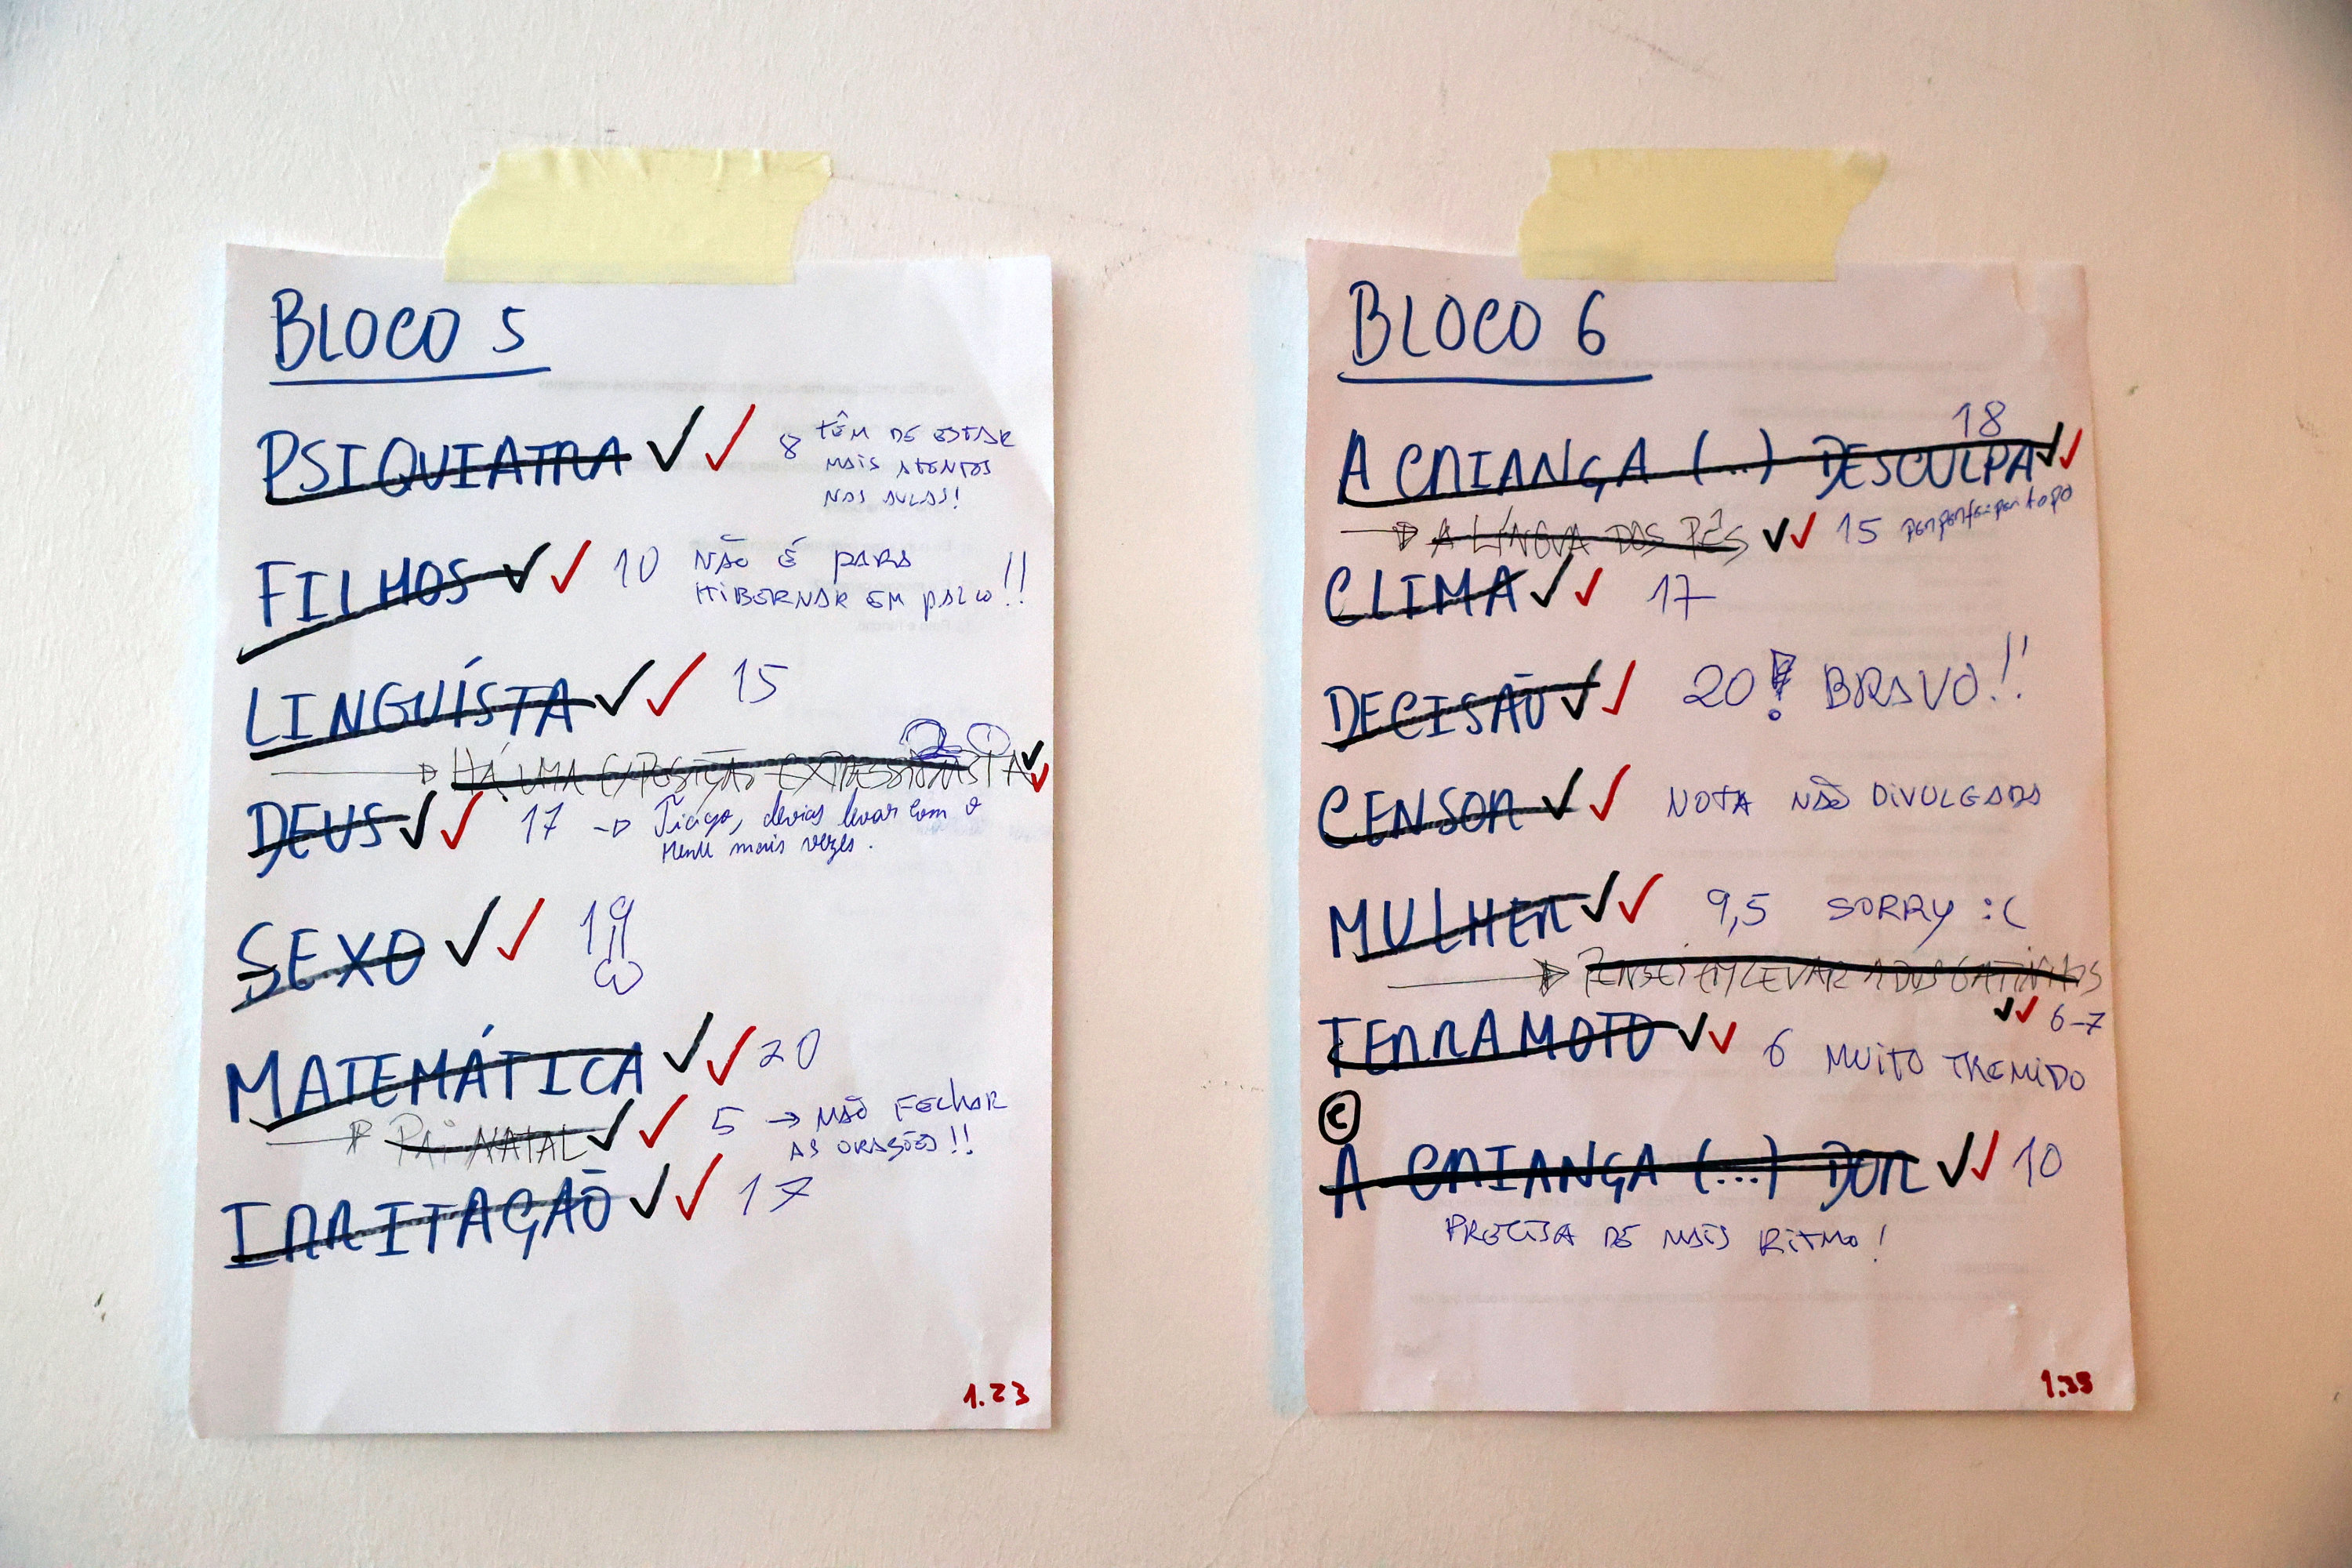 BLOCO 5
PSIQUIATRA 8 TÊM DE ESTAR
MAIS ATENTOS
NAS AULAS!
FILHOS 10 NÃO É PARA
HIBERNAR EM PALCO!!
LINGUÍSTA 15
20
HÁ UMA EXPOSIÇÃO EXPRESSIONISTA
DEUS 17 Tiago, devias levar com o
mais vezes.
SEXO 19
MATEMÁTICA 20
PAI NATAL 5 → NÃO FECHAR
AS ORAÇÕES!!
IRRITAÇÃO 17
1.23
BLOCO 6
18
A CRIANÇA (...) DESCULPA
A LÍNGUA DOS PÊS 15
CLIMA 17
DECISÃO 20! BRAVO!!
CENSOR NOTA NÃO DIVULGADA
MULHER 9,5 SORRY :(
PENSEI EM LEVAR A DOS GATINHOS
6-7
TERRAMOTO 6 MUITO TREMIDO
C
A CRIANÇA (...) DOR 10
PRECISA DE MAIS RITMO!